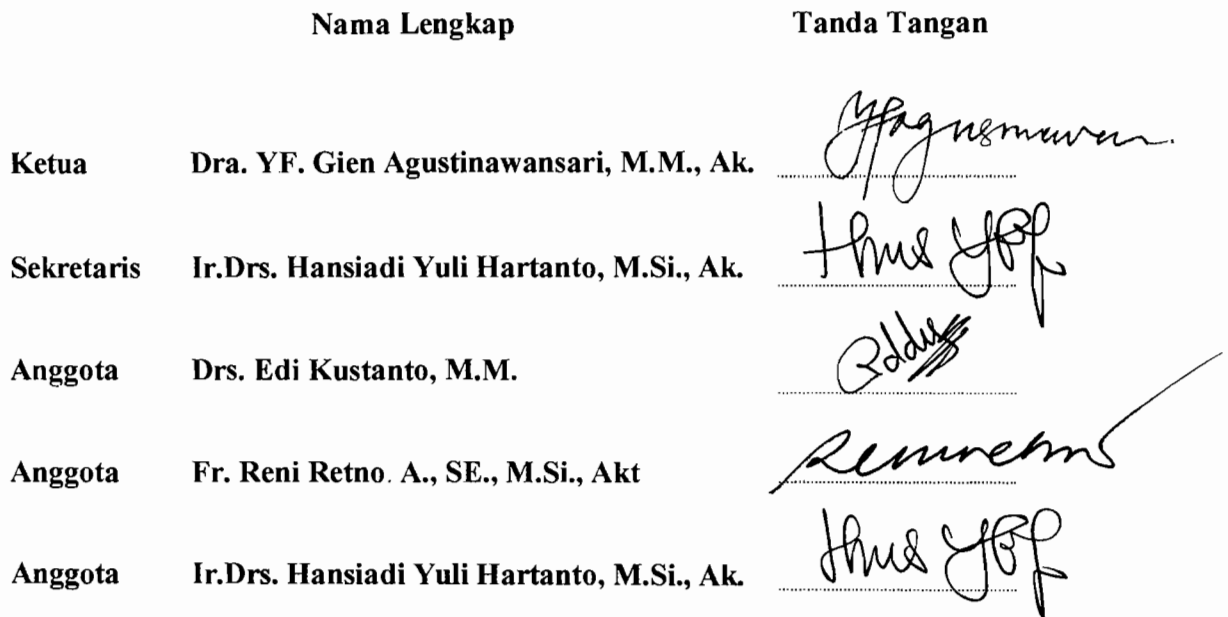 Nama Lengkap Tanda Tangan
Ketua Dra. YF. Gien Agustinawansari, M.M., Ak.
Sekretaris Ir.Drs. Hansiadi Yuli Hartanto, M.Si., Ak.
Anggota Drs. Edi Kustanto, M.M.
Anggota Fr. Reni Retno. A., SE., M.Si., Akt
Anggota Ir.Drs. Hansiadi Yuli Hartanto, M.Si., Ak.